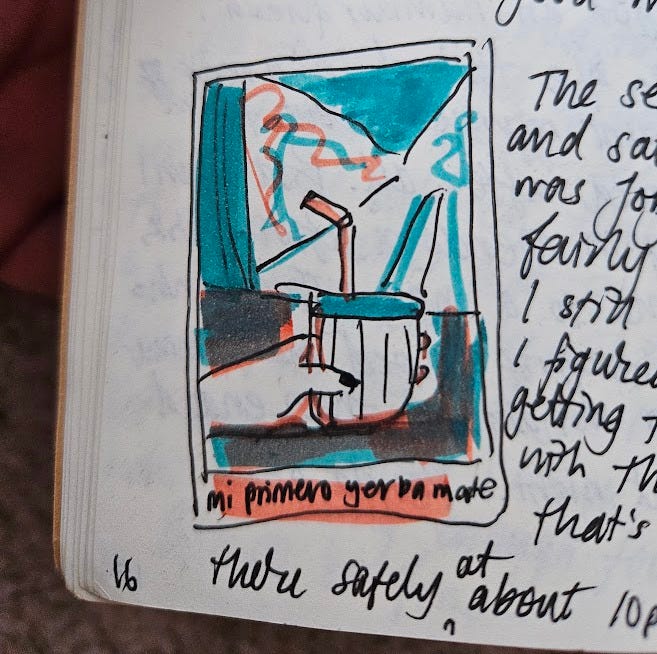 good
The
and
was
fairly
I still
I figured
getting
with
that's
mi primero yerba mate
16
there safely at about 10p